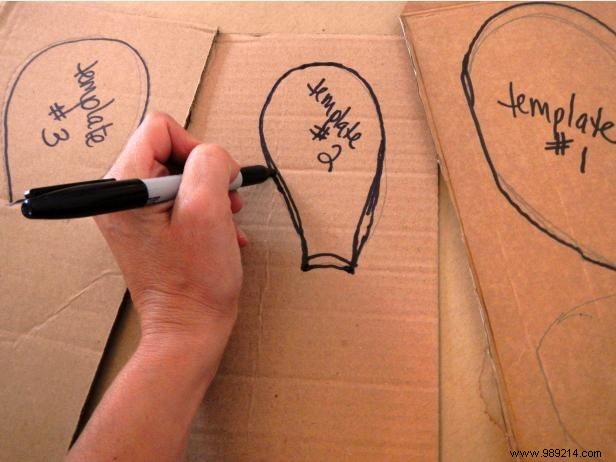 template
# 3
template
# 2
template
# 1
www.989214.com